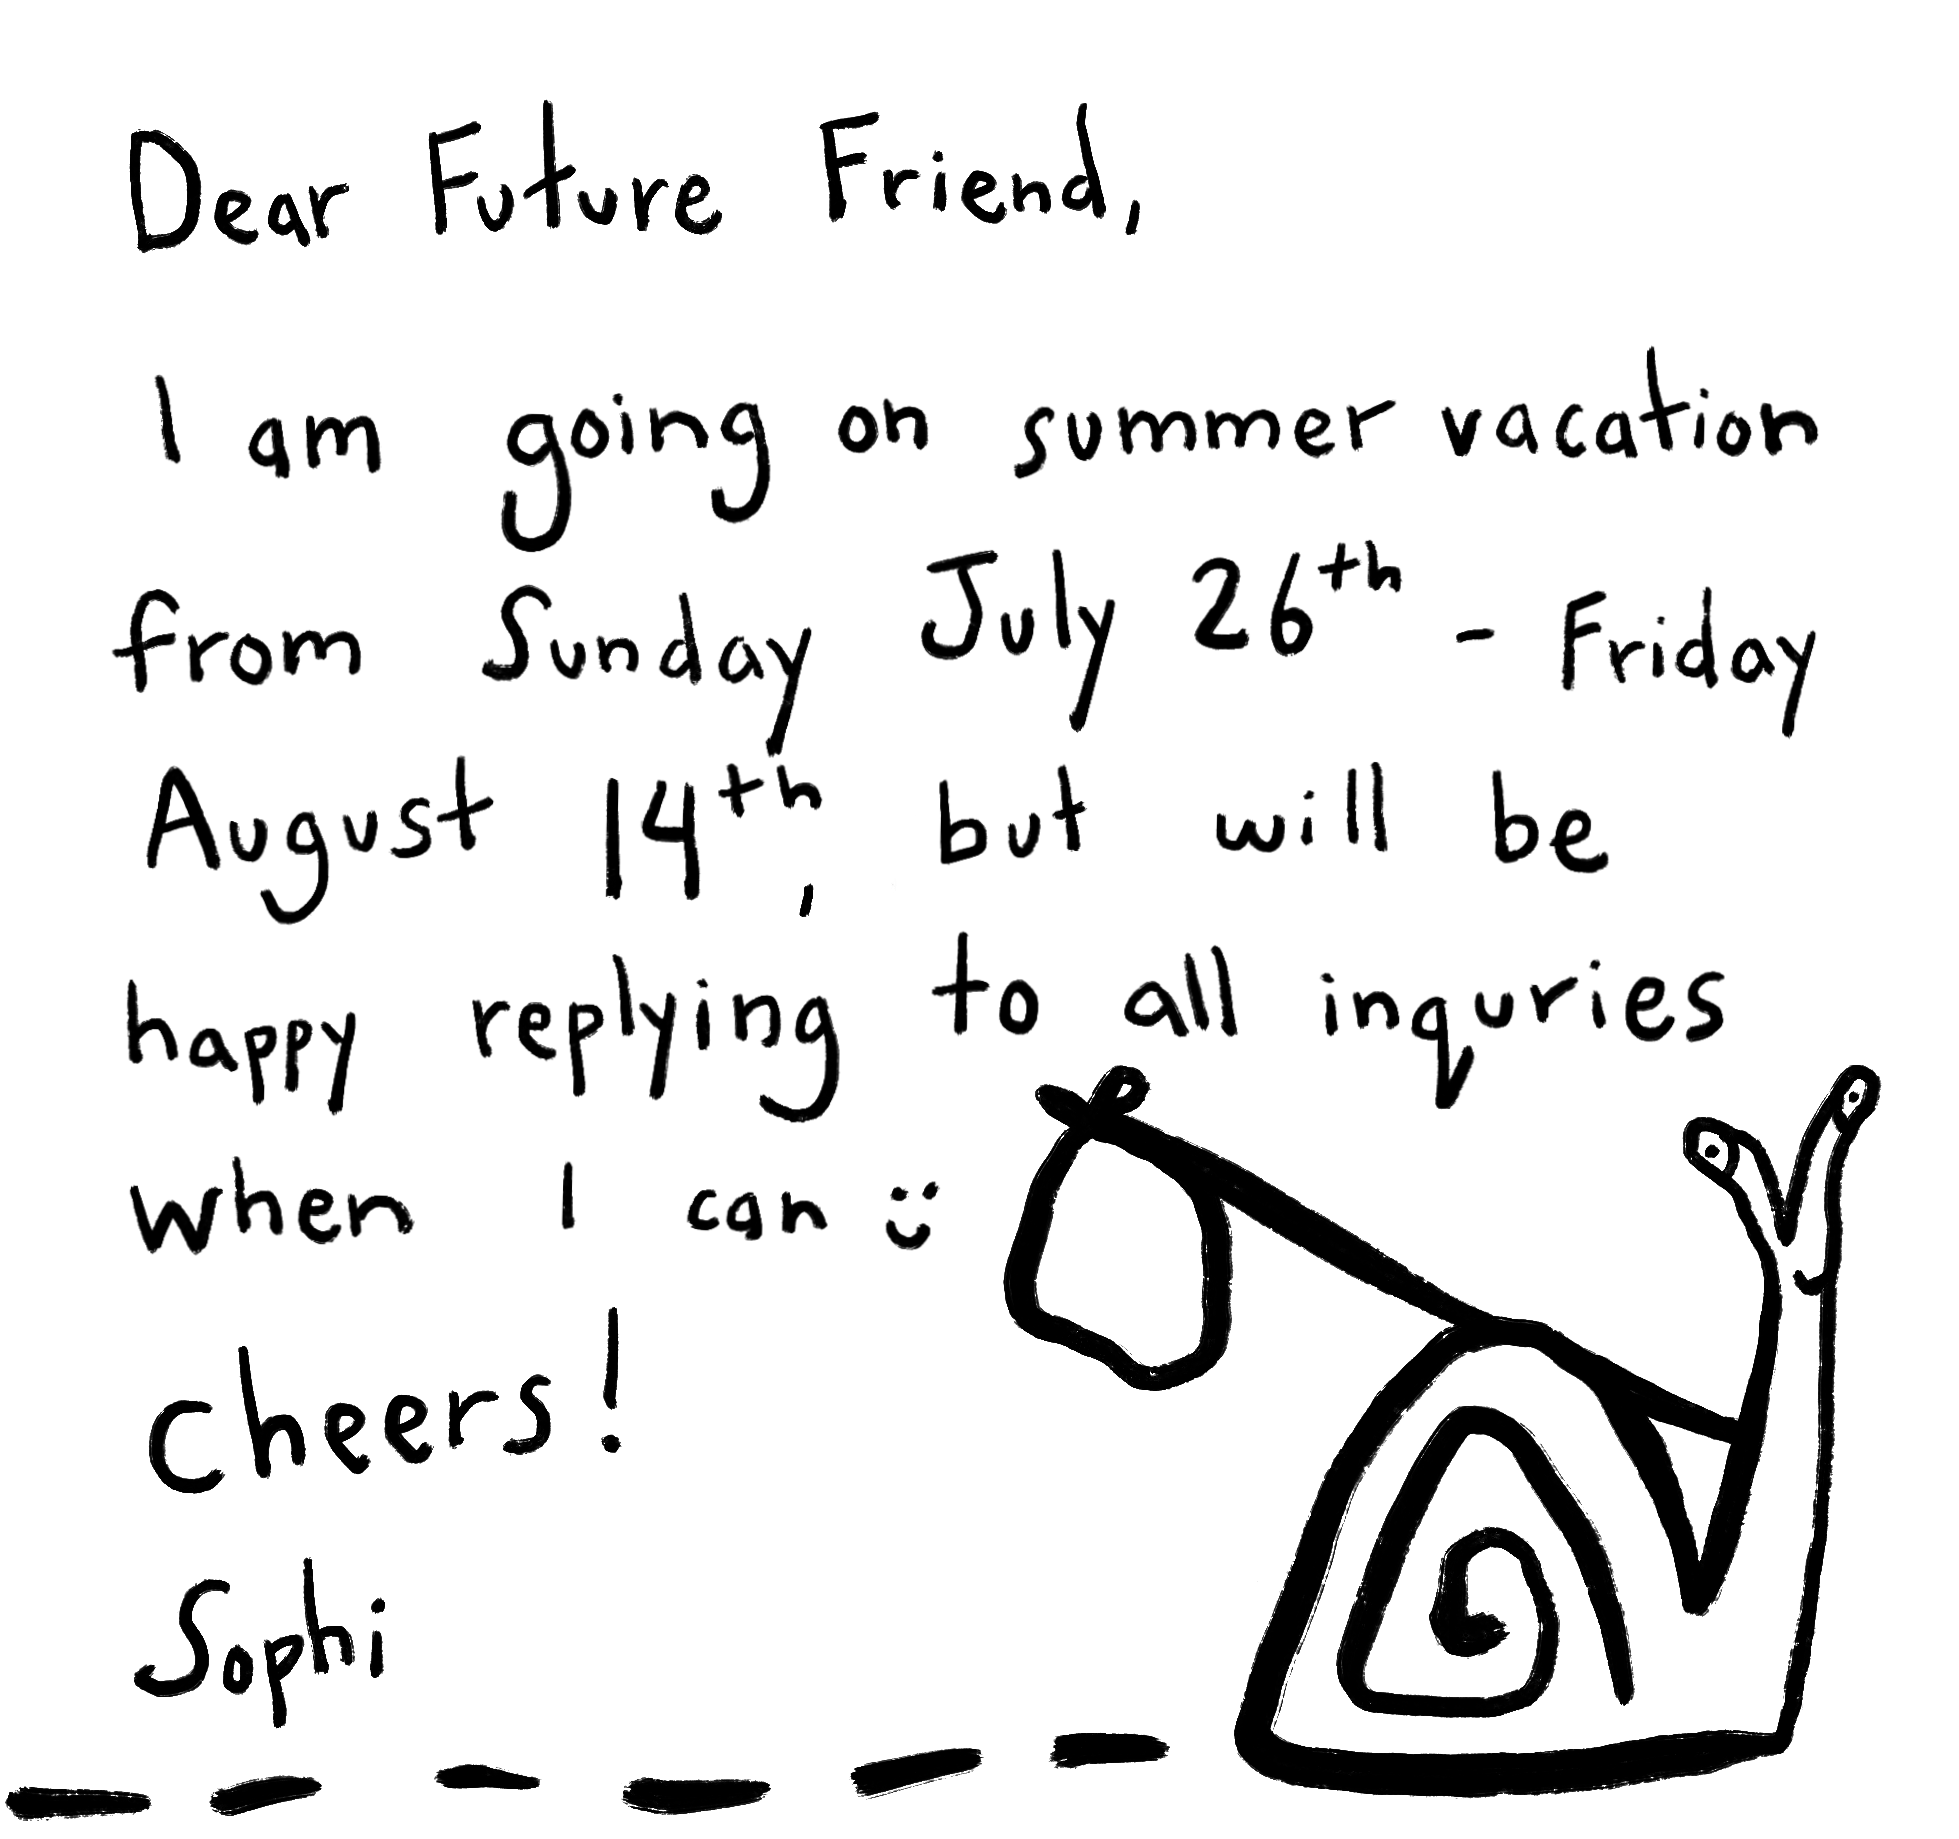 Dear Future Friend,
I am going on summer vacation
from Sunday July 26th - Friday
August 14th, but will be
happy replying to all inquries
when I can :)
Cheers!
Sophi